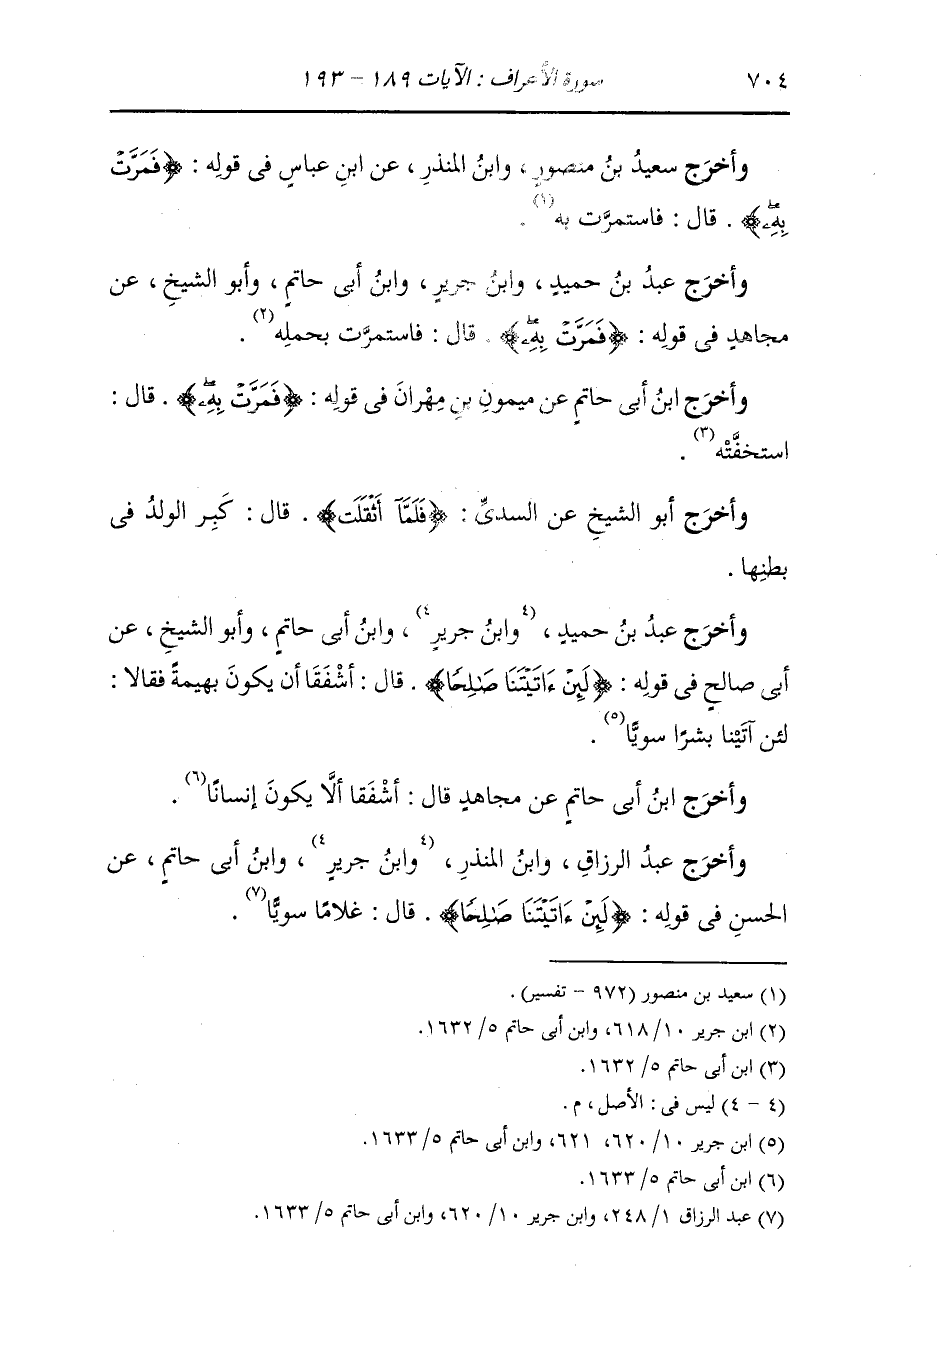 ٧٠٤ سورة الأعراف : الآيات ١٨٩ - ١٩٣
وأخرَج سعيدُ بنُ منصورٍ ، وابنُ المنذرِ ، عن ابنِ عباسٍ فى قولِه : ﴿فَمَرَّتْ
بِهِۦۖ﴾ . قال : فاستمرَّت به(١) .
وأخرَج عبدُ بنُ حميدٍ ، وابنُ جريرٍ ، وابنُ أبى حاتمٍ ، وأبو الشيخِ ، عن
مجاهدٍ فى قولِه : ﴿فَمَرَّتْ بِهِۦۖ﴾ . قال : فاستمرَّت بحملِه(٢) .
وأخرَج ابنُ أبى حاتمٍ عن ميمونِ بنِ مِهْرانَ فى قولِه : ﴿فَمَرَّتْ بِهِۦۖ﴾ . قال :
استخفَّتْه(٣) .
وأخرَج أبو الشيخِ عن السدىِّ : ﴿فَلَمَّآ أَثْقَلَت﴾ . قال : كَبِر الولدُ فى
بطنِها .
وأخرَج عبدُ بنُ حميدٍ ، (٤وابنُ جريرٍ٤) ، وابنُ أبى حاتمٍ ، وأبو الشيخِ ، عن
أبى صالحٍ فى قولِه : ﴿لَئِنْ ءَاتَيْتَنَا صَٰلِحًا﴾ . قال : أشْفَقَا أن يكونَ بهيمةً فقالا :
لئن آتَيْتنا بشرًا سويًّا(٥) .
وأخرَج ابنُ أبى حاتمٍ عن مجاهدٍ قال : أشْفَقا ألَّا يكونَ إنسانًا(٦) .
وأخرَج عبدُ الرزاقِ ، وابنُ المنذرِ ، (٤وابنُ جريرٍ٤) ، وابنُ أبى حاتمٍ ، عن
الحسنِ فى قولِه : ﴿لَئِنْ ءَاتَيْتَنَا صَٰلِحًا﴾ . قال : غلامًا سويًّا(٧) .
(١) سعيد بن منصور (٩٧٢ - تفسير) .
(٢) ابن جرير ١٠/ ٦١٨، وابن أبى حاتم ٥/ ١٦٣٢.
(٣) ابن أبى حاتم ٥/ ١٦٣٢.
(٤ - ٤) ليس فى : الأصل ، م .
(٥) ابن جرير ١٠/ ٦٢٠، ٦٢١، وابن أبى حاتم ٥/ ١٦٣٣.
(٦) ابن أبى حاتم ٥/ ١٦٣٣.
(٧) عبد الرزاق ١/ ٢٤٨، وابن جرير ١٠/ ٦٢٠، وابن أبى حاتم ٥/ ١٦٣٣.